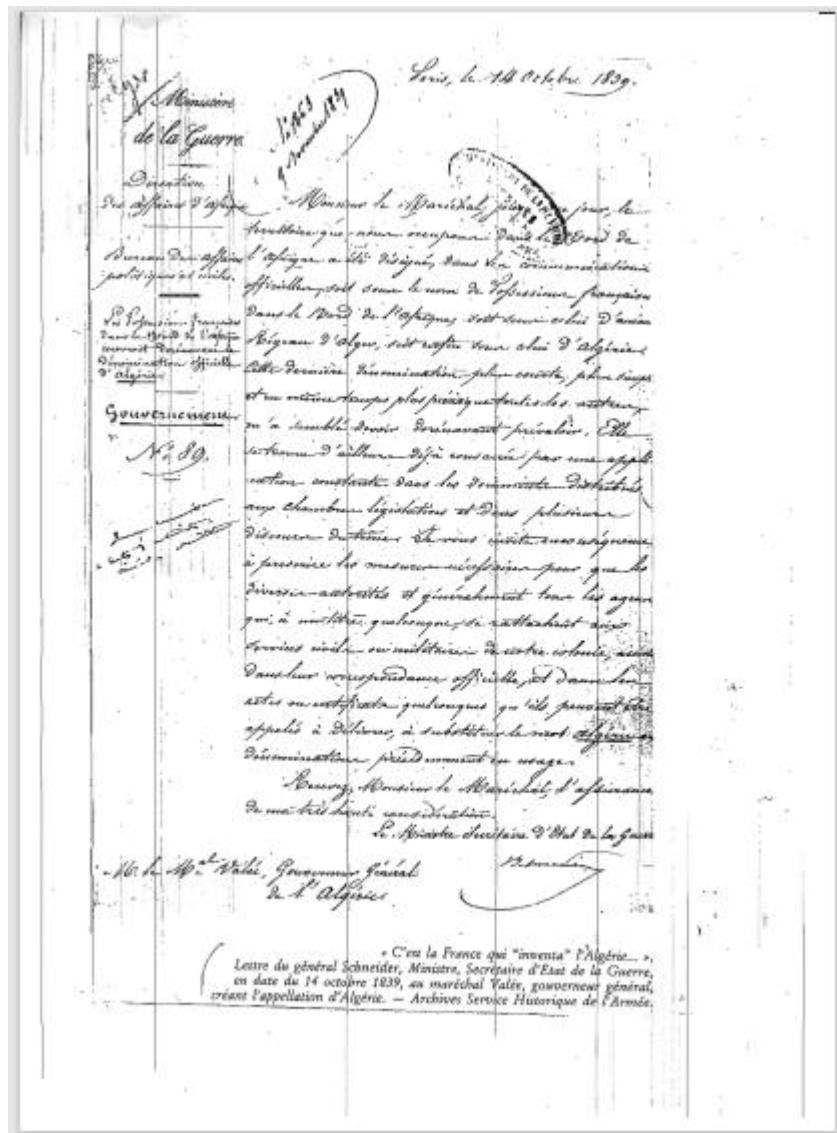 Paris, le 14 Octobre 1839.
Ministère
de la Guerre
N° 1863
9 Novembre 1839
Direction
des affaires d'afrique
Bureau des affaires
politiques et civiles.
Les Possessions françaises
dans le Nord de l'afrique
dénomination officielle
d'Algérie
Gouvernement
N° 89.
Monsieur le Maréchal, jour, le
territoire que nous occupons dans le Nord de
l'afrique a été désigné, dans les communications
officielles, soit sous le nom de Possessions françaises
dans le Nord de l'afrique, soit sous celui d'ancienne
Régence d'alger, soit enfin sous celui d'Algérie.
Cette dernière dénomination plus courte, plus simple
et en même temps plus précise que toutes les autres,
m'a semblé devoir dorénavant prévaloir. Elle
se trouve d'ailleurs déjà consacrée par une appli
cation constante dans les documents distribués
aux chambres législatives et dans plusieurs
discours du trône. Je vous invite en conséquence
à prendre les mesures nécessaires pour que les
diverses autorités et généralement tous les agens
qui, à un titre quelconque, se rattachent aux
services civils ou militaires de notre colonie,
dans leur correspondance officielle, et dans les
actes ou certificats quelconques qu'ils peuvent être
appelés à délivrer, à substituer le mot algérie
dénominations précédemment en usage.
Recevez, Monsieur le Maréchal, l'assurance
de ma très haute considération.
Le Ministre Secrétaire d'Etat de la Guerre
M. le Mal Valée, Gouverneur Général
de l'Algérie
« C'est la France qui "inventa" l'Algérie... »,
Lettre du général Schneider, Ministre, Secrétaire d'Etat de la Guerre,
en date du 14 octobre 1839, au maréchal Valée, gouverneur général,
créant l'appellation d'Algérie. — Archives Service Historique de l'Armée.